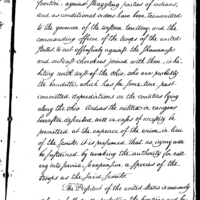 frontier, against straggling parties of indians,
and as conditional orders have been transmitted
to the governor of the western territory, and the
commanding officer of the troops of the united
States to act offensively against the Shawanese
and outcast cherokees joined with them, inha-
biting west of the Ohio, who are probably
the banditti, which has for some time past
committed depredations on the counties lying
along the Ohio. Unless the militia or rangers
heretofore departed will in case of necessity be
permitted at the expence of the union, in lieu
of the Scouts it is presumed that no injury will
be sustained, by making the authority for call-
ing into service, comprehend a species of the
troops as the said Scouts.
The President of the united states is anxiously